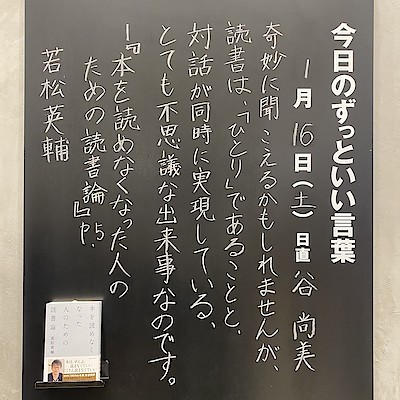 今日のずっといい言葉
1月16日(土) 日直 谷 尚美
奇妙に聞こえるかもしれませんが、
読書は、「ひとり」であることと、
対話が同時に実現している、
とても不思議な出来事なのです。
―『本を読めなくなった人の
ための読書論』P5.
若松英輔
本を読めなく
なった
人のための
読書論
若松英輔